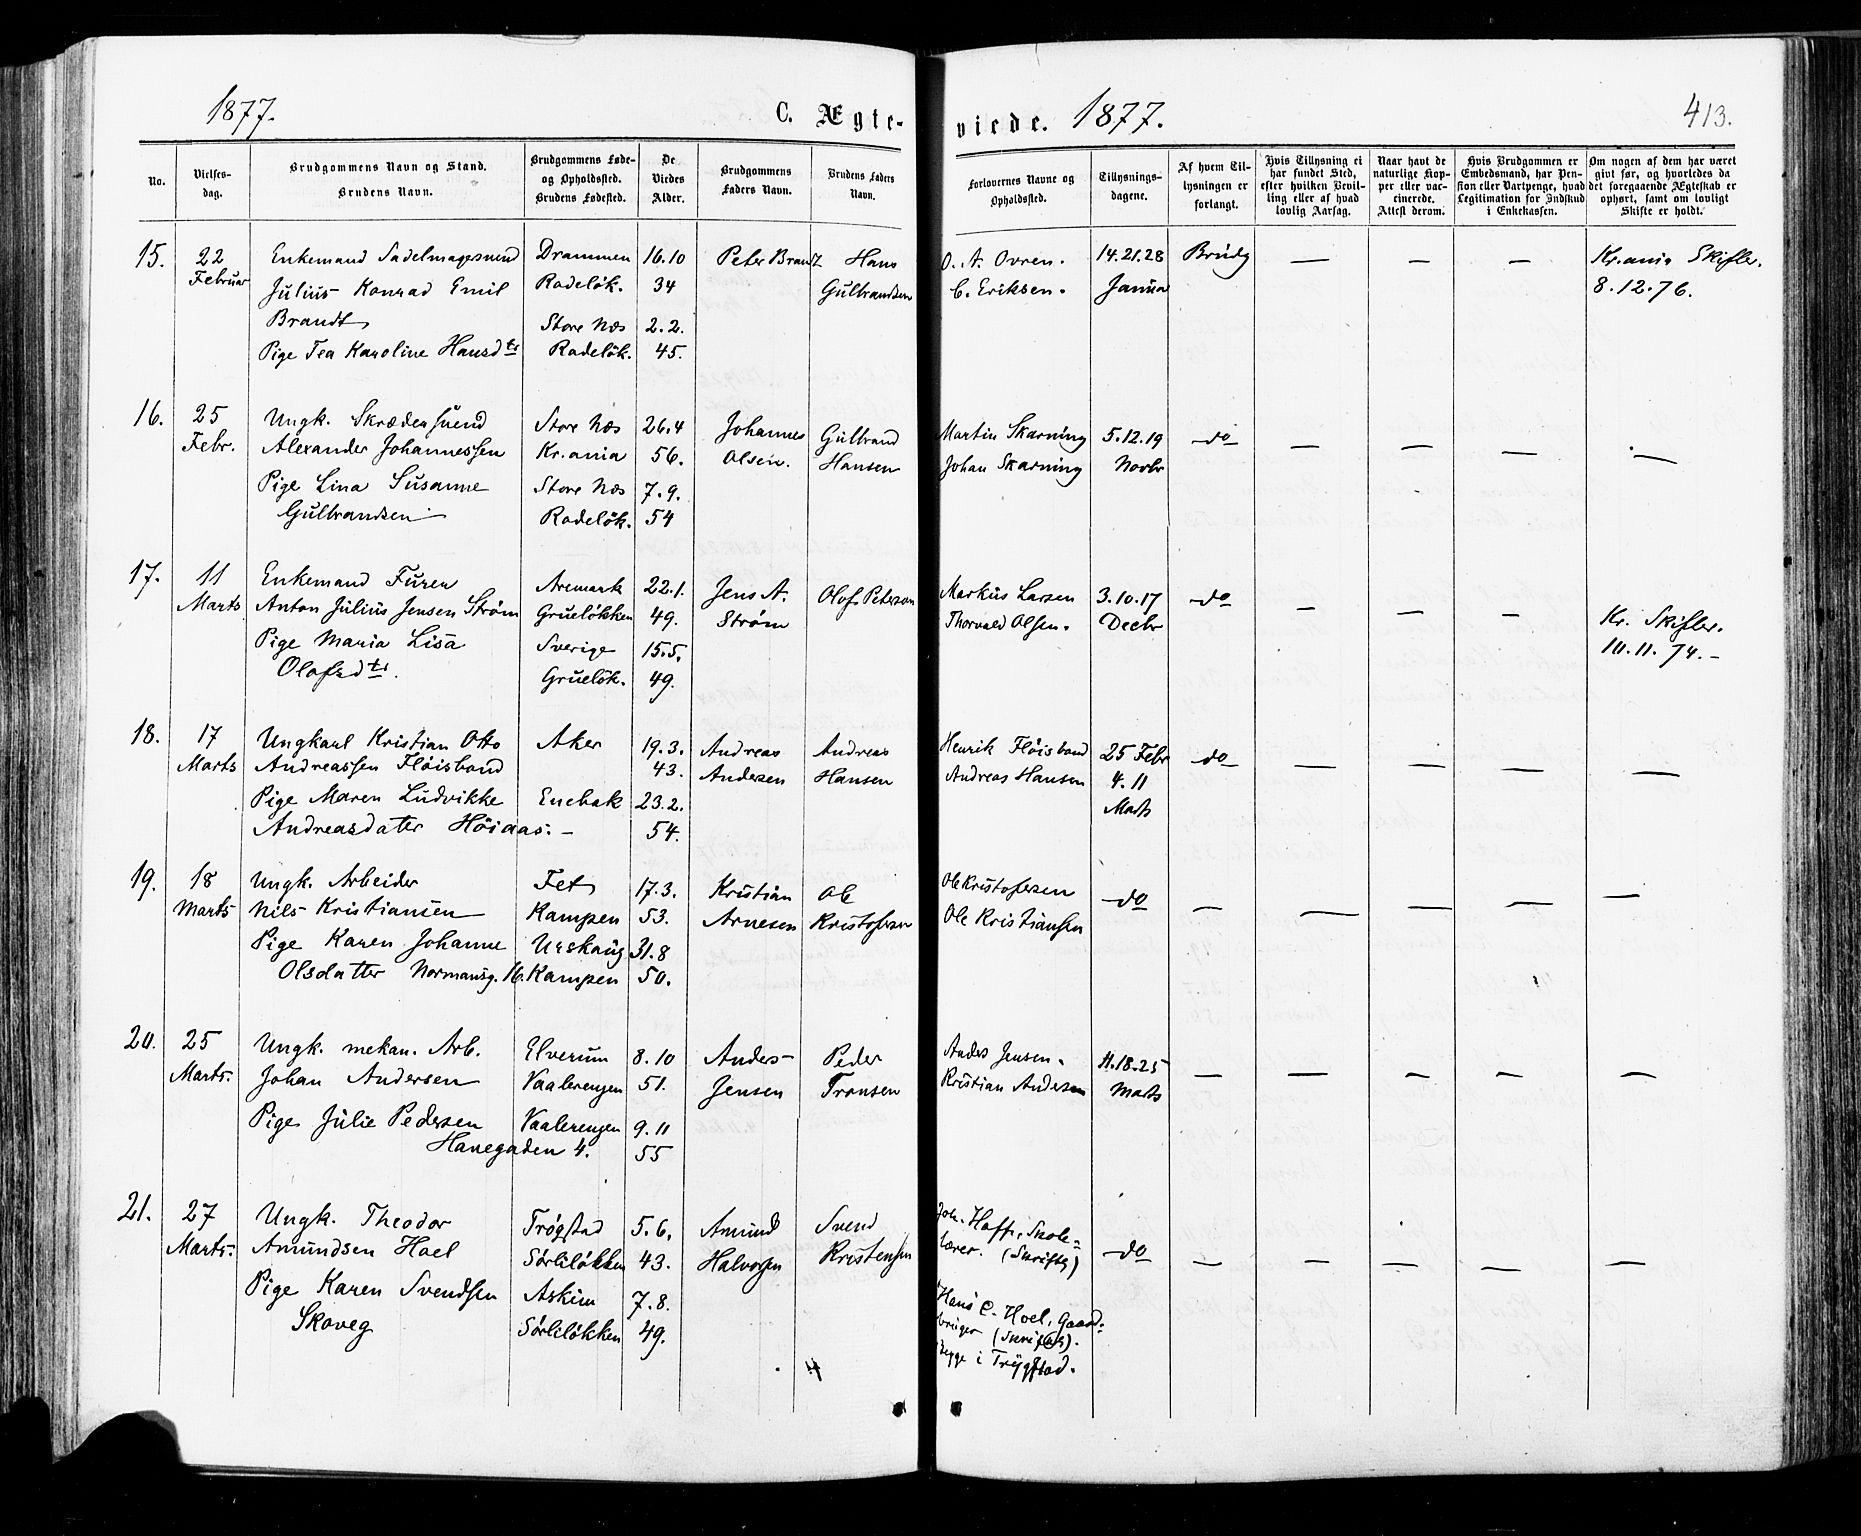 1877.
C. Ægte-
viede. 1877.
413.
No.
Vielses-
dag.
Brudgommens Navn og Stand.
Brudens Navn.
Brudgommens Føde-
og Opholdssted.
Brudens Fødested.
De
Viedes
Alder.
Brudgommens
Faders Navn.
Brudens Faders
Navn.
Forlovernes Navne og
Opholdssted.
Tillysnings-
dagene.
Af hvem Til-
lysningen er
forlangt.
Hvis Tillysning ei
har fundet Sted,
efter hvilken Bevil-
ling eller af hvad
lovlig Aarsag.
Naar havt de
naturlige Kop-
per eller vac-
cinerede.
Attest derom.
Hvis Brudgommen er
Embedsmand, har Pen-
sion eller Vartpenge, hvad
Legitimation for Indskud
i Enkekassen.
Om nogen af dem har været
givt før, og hvorledes da
det foregaaende Ægteskab er
ophørt, samt om lovligt
Skifte er holdt.
15.
22
Februar
Enkemand Sadelmagersvend
Julius Konrad Emil
Brandt
Pige Tea Karoline Hansdtr
Drammen
Rodeløk.
Store Næs
Rodeløk.
16.10
34
2.2.
45.
Peter Brandt
Hans
Gulbrandsen
O. A. Ovren.
C. Eriksen.
14.21.28
Janua
Brudg
—
—
—
Kr.ania Skifter.
8.12.76.
16.
25
Febr.
Ungk. Skrædersvend
Alexander Johannessen
Pige Lina Susanne
Gulbrandsen
Store Næs
Kr.ania
Store Næs
Rodeløk.
26.4
56.
7.9.
54
Johannes
Olsen.
Gulbrand
Hansen
Martin Skarning
Johan Skarning
5.12.19
Novbr
do
—
—
—
—
17.
11
Marts
Enkemand Furer
Anton Julius Jensen Strøm
Pige Maria Lisa
Olofsdtr.
Aremark
Grueløkken
Sverige
Grueløk.
22.1.
49.
15.5.
49.
Jens A.
Strøm
Olof Peterson
Markus Larsen
Thorvald Olsen.
3.10.17
Decbr
do
—
—
—
Kr. Skifter.
10.11.74.–
18.
17
Marts
Ungkarl Kristian Otto
Andreassen Fløisbond
Pige Maren Ludvikke
Andreasdater Høiaas.–
Aker
Enebak
19.3.
43.
23.2.
54.
Andreas
Andersen
Andreas
Hansen
Henrik Fløisbond
Andreas Hansen
25 Febr
4.11
Marts
do
—
—
—
—
19.
18
Marts
Ungk. Arbeider
Nils Kristiansen
Pige Karen Johanne
Olsdatter Normansg. 16.
Fet
Kampen
Urskaug
Kampen
17.3.
53.
31.8
50.
Kristian
Arnesen
Ole
Kristofersen
Ole Kristofersen
Ole Kristiansen
do
—
—
—
—
—
20.
25
Marts.
Ungk. mekan. Arb.
Johan Andersen
Pige Julie Pedersen
Hanegaden 4.
Elverum
Vaalerengen
Vaalerengen
8.10
51.
9.11
55
Anders
Jensen
Peder
Tronsen
Anders Jensen.
Kristian Andersen
11.18.25
Marts
—
—
—
—
—
21.
27
Marts.
Ungk. Theodor
Amundsen Hoel
Pige Karen Svendsen
Skoveg
Trøgstad
Sørliløkken
Askim
Sørliløkken
5.6.
43.
7.8.
49.
Amund
Halvorsen
Svend
Kristensen
Joh. Hoff, Skole-
lærer. (Skriftlg)
Hans C. Hoel, Gaard-
bruger (Skriftlg).
Begge i Trygstad.
do
—
—
—
—
—